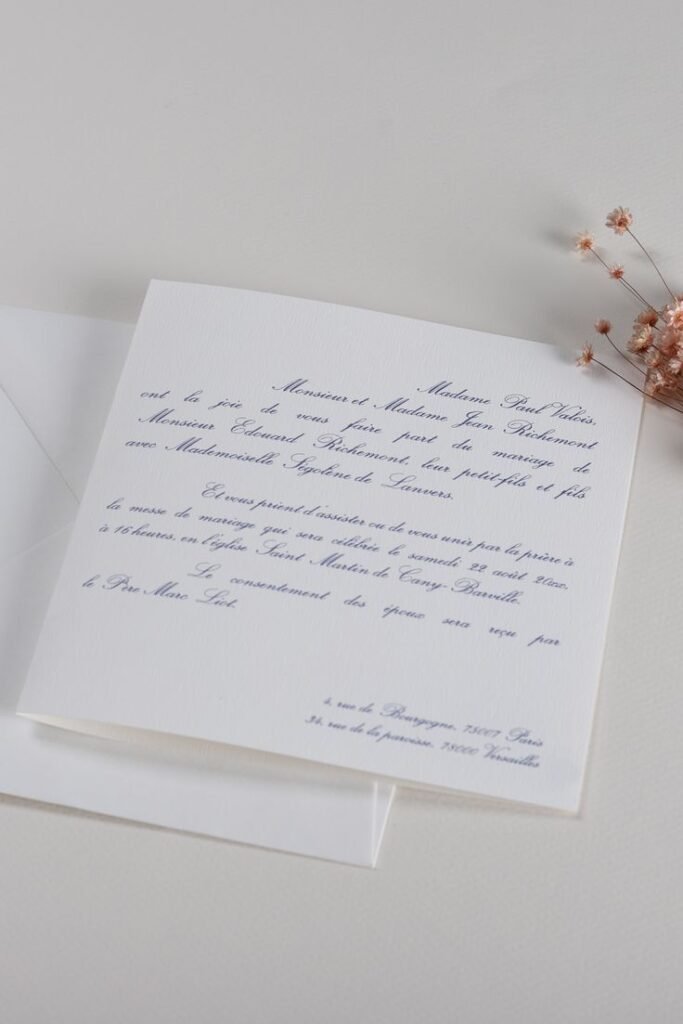 Madame Paul Valois,
Monsieur et Madame Jean Richemont
ont la joie de vous faire part du mariage de
Monsieur Edouard Richemont, leur petit-fils et fils
avec Mademoiselle Ségolène de Lanvers.
Et vous prient d'assister ou de vous unir par la prière à
la messe de mariage qui sera célébrée le samedi 22 août 20xx,
à 16 heures, en l'église Saint Martin de Cany-Barville.
Le consentement des époux sera reçu par
le Père Marc Liot.
4, rue de Bourgogne, 75007 Paris
34, rue de la paroisse, 78000 Versailles